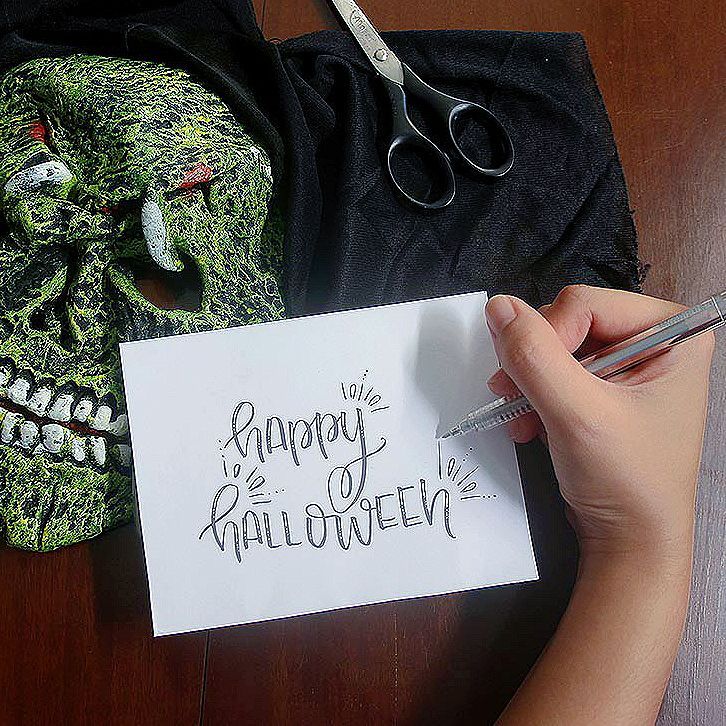 happy
halloween